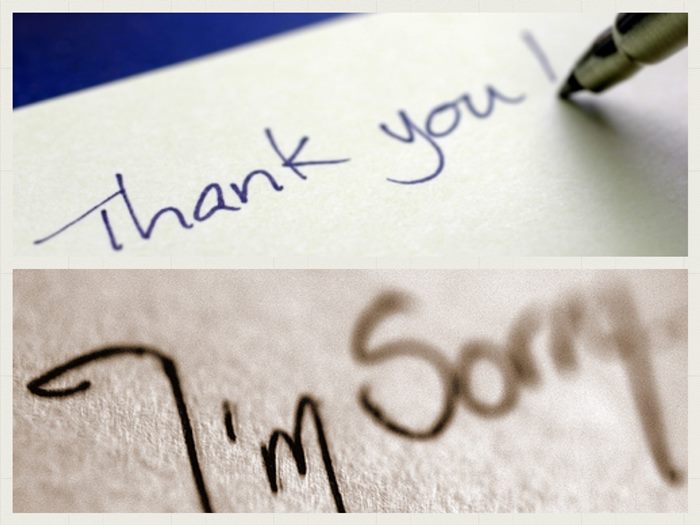 Thank you!
I'm Sorry